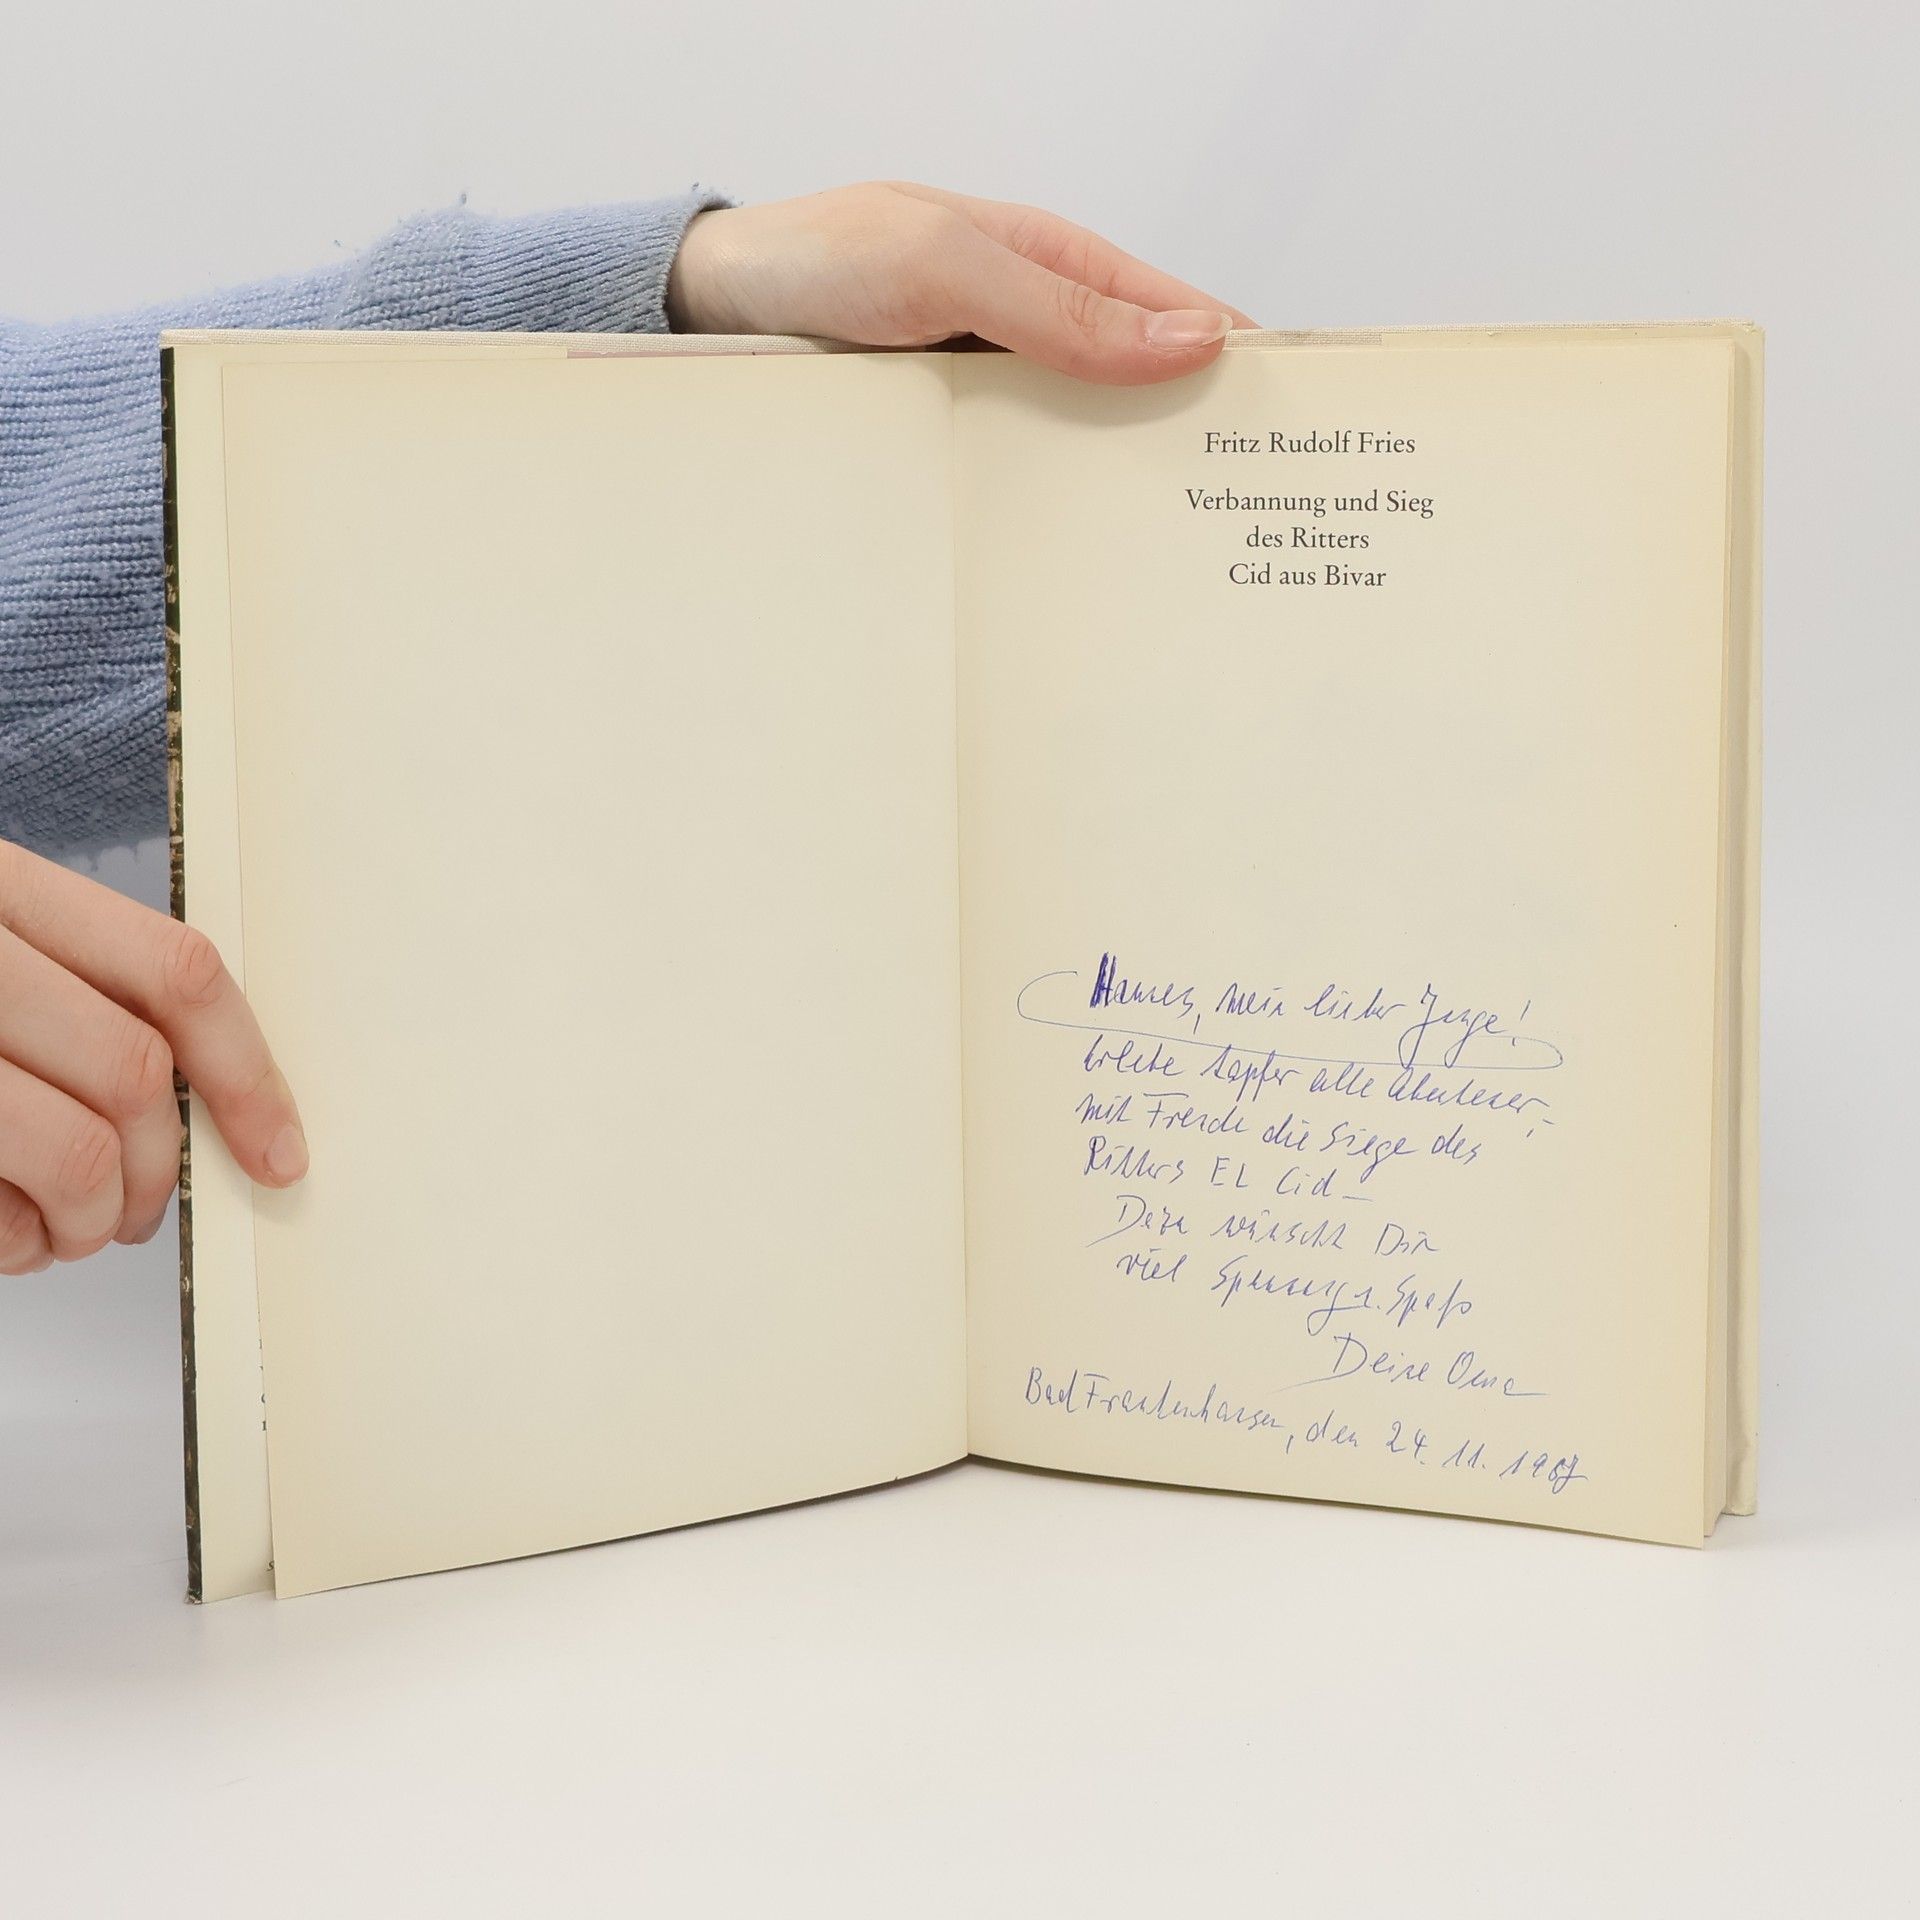 Fritz Rudolf Fries
Verbannung und Sieg
des Ritters
Cid aus Bivar
Hannes, mein lieber Junge!
Erlebe tapfer alle Abenteuer,
mit Freude die Siege des
Ritters EL Cid –
Dazu wünscht Dir
viel Spannung u. Spaß
Deine Oma
Bad Frankenhausen, den 24. 11. 1987